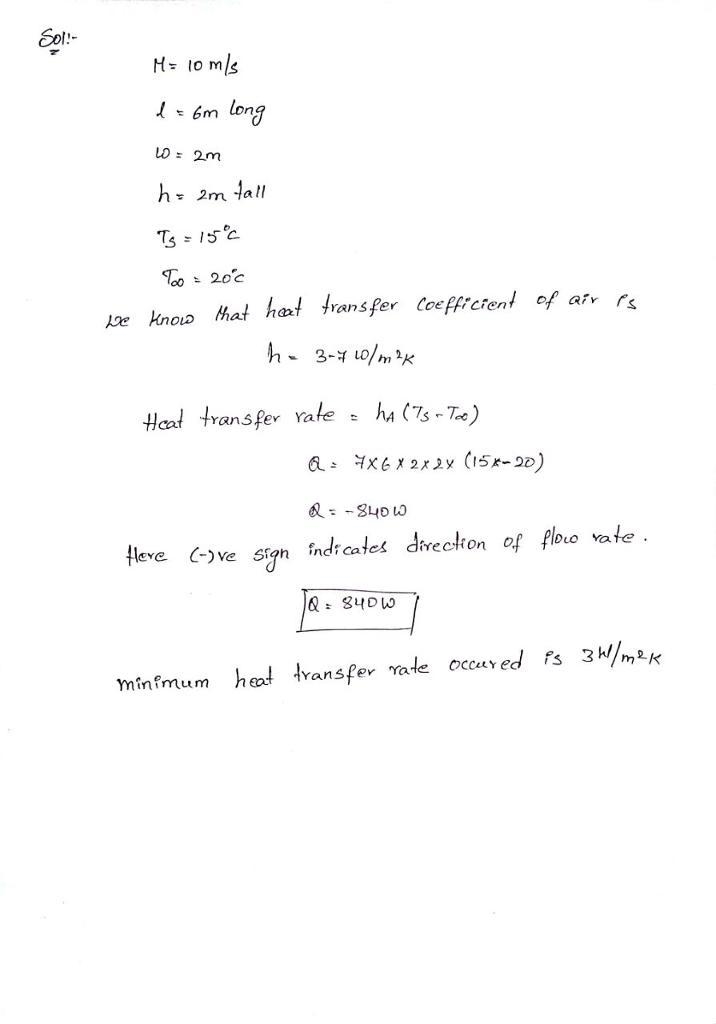 Sol:-
M = 10 m/s
l = 6m long
w = 2m
h = 2m tall
Ts = 15°C
T∞ = 20°C
We know that heat transfer coefficient of air is
h = 3-7 W/m²K
Heat transfer rate = hA (Ts - T∞)
Q = 7×6×2×2× (15×-20)
Q = -840W
Here (-)ve sign indicates direction of flow rate.
Q = 840W
minimum heat transfer rate occured is 3W/m²K